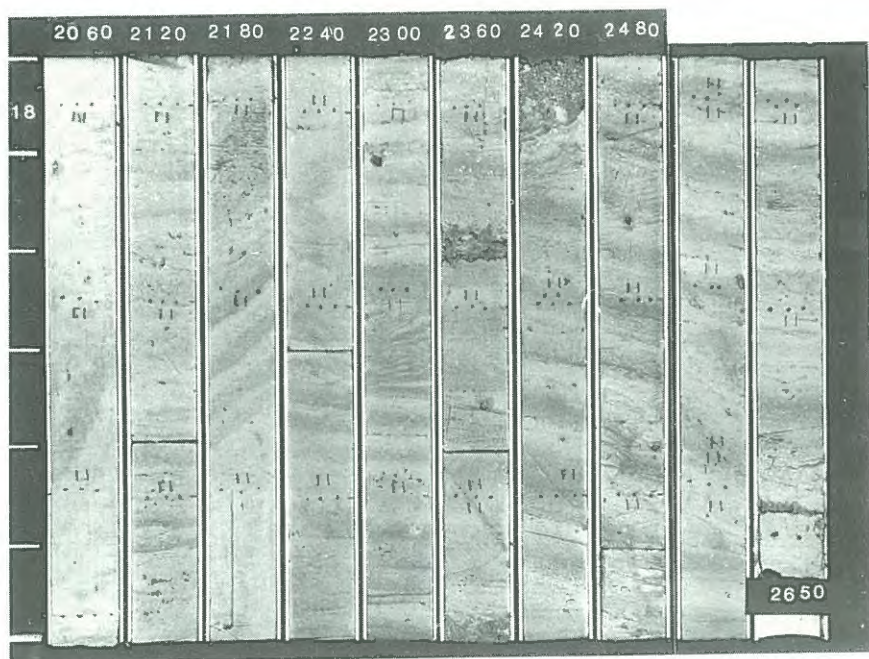 2060 2120 2180 2240 2300 2360 2420 2480
18
2650